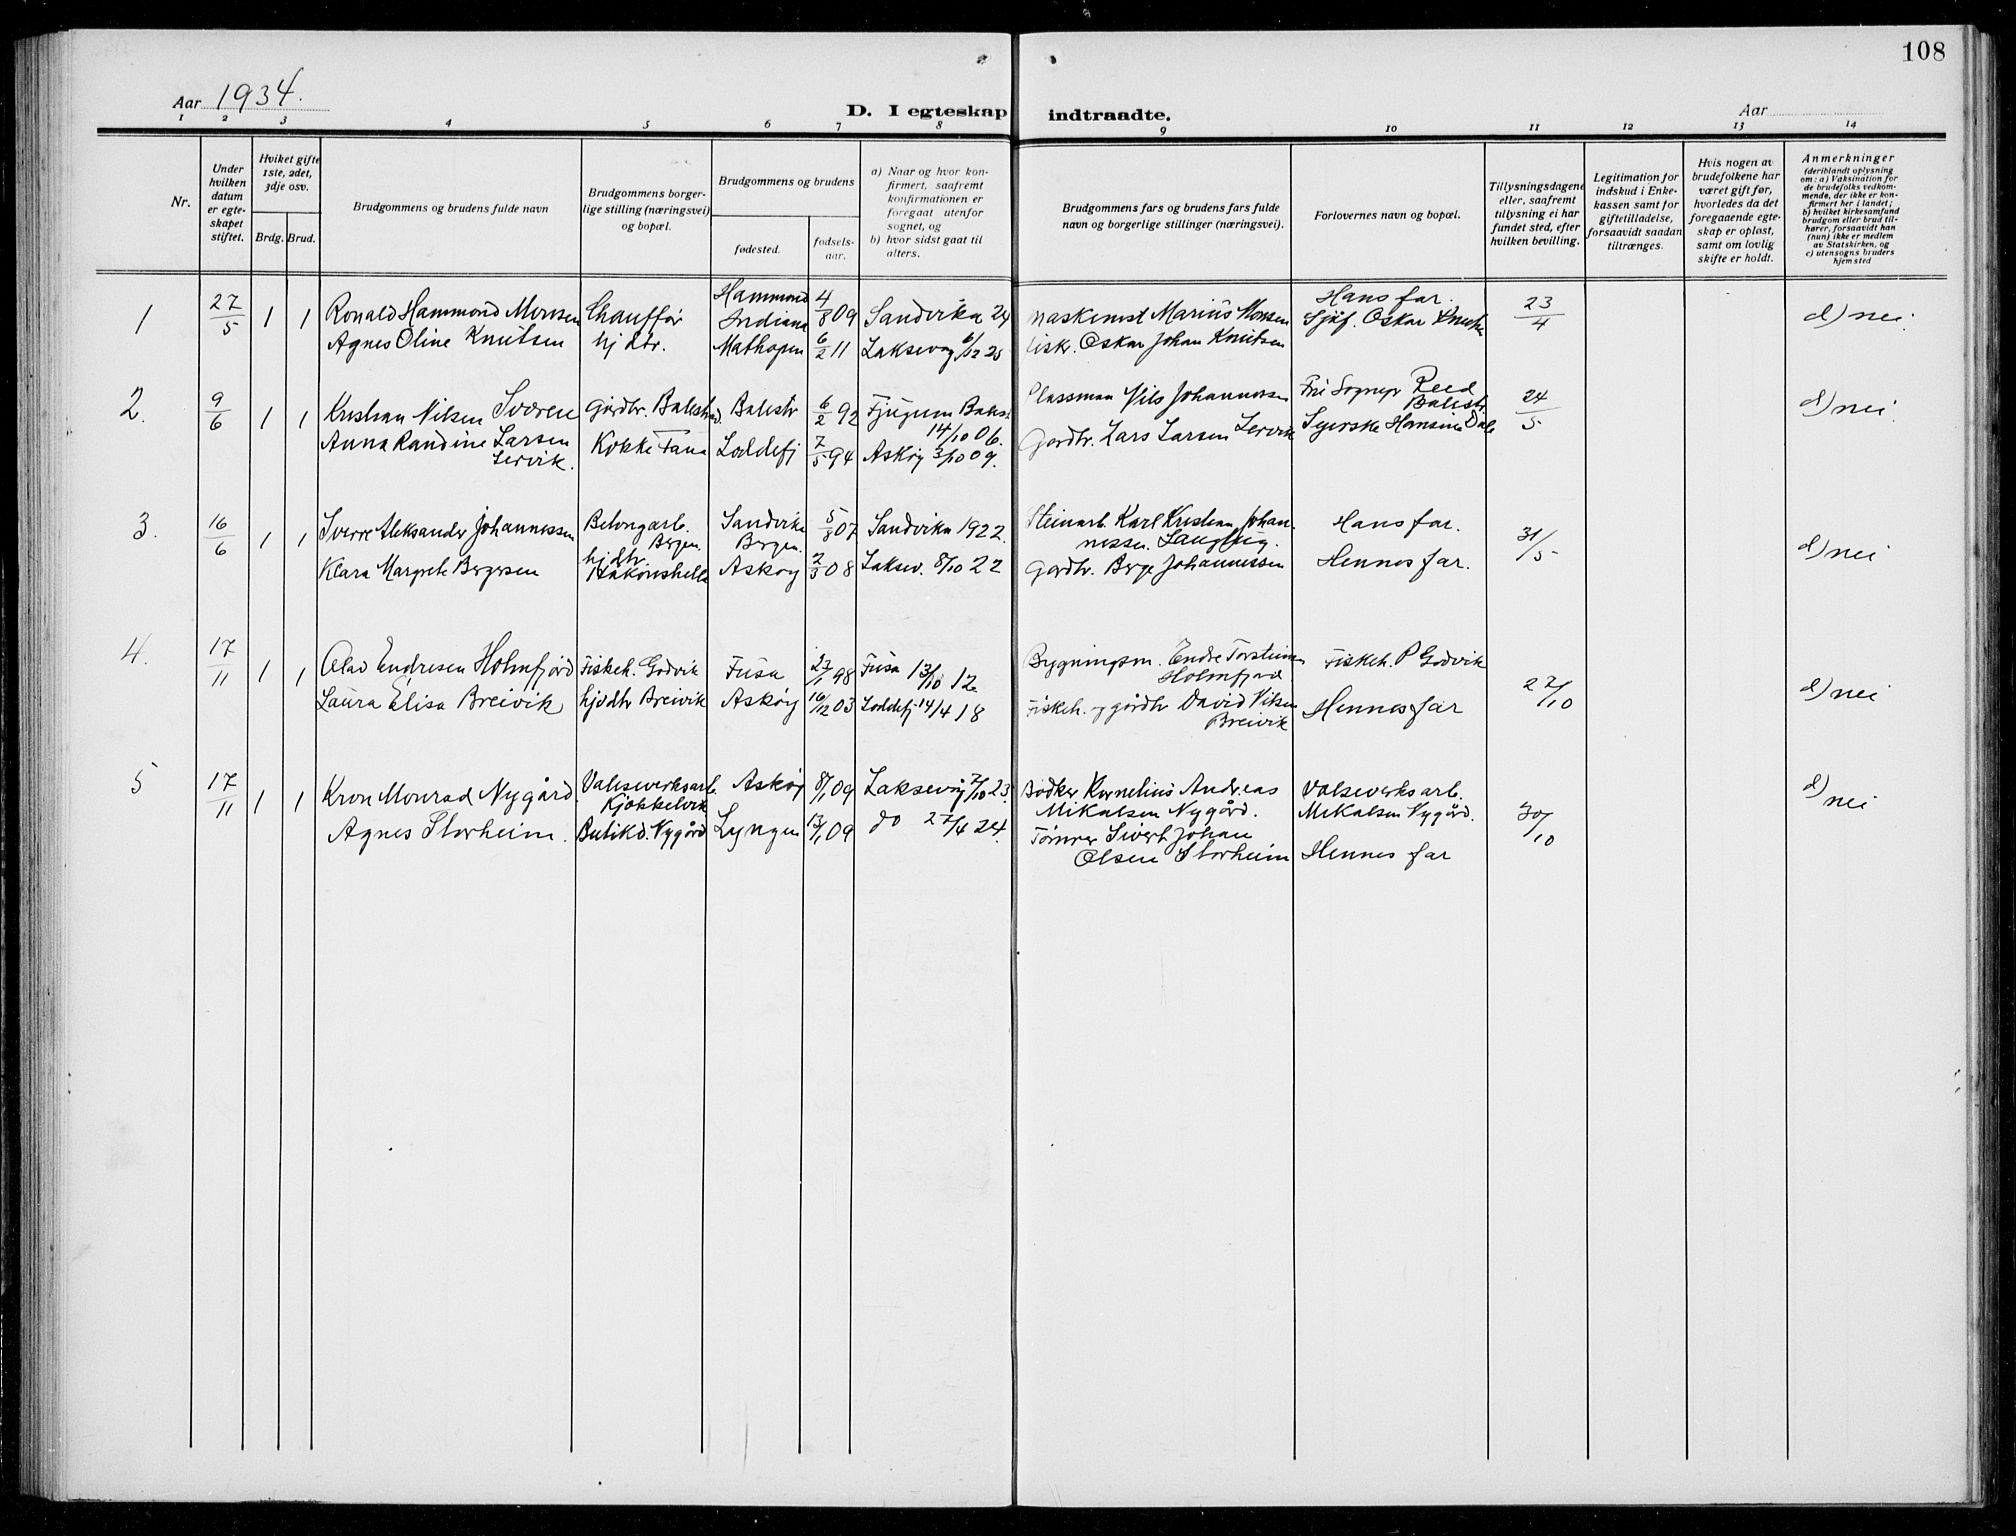 108
Aar 1934.
D. I egteskap indtraadte.
Aar
1 2 3 4 5 6 7 8 9 10 11 12 13 14
Nr.
Under hvilken datum er egteskapet stiftet.
Hviket gifte 1ste, 2det, 3dje osv.
Brdg. Brud.
Brudgommens og brudens fulde navn
Brudgommens borgerlige stilling (næringsvei) og bopæl.
Brudgommens og brudens
fødested.
fødselsaar.
a) Naar og hvor konfirmert, saafremt konfirmationen er foregaat utenfor sognet, og
b) hvor sidst gaat til alters.
Brudgommens fars og brudens fars fulde navn og borgerlige stillinger (næringsvei).
Forlovernes navn og bopæl.
Tillysningsdagene eller, saafremt tillysning ei har fundet sted, efter hvilken bevilling.
Legitimation for indskud i Enkekassen samt for giftetilladelse, forsaavidt saadan tiltrænges.
Hvis nogen av brudefolkene har været gift før, hvorledes da det foregaaende egteskap er opløst, samt om lovlig skifte er holdt.
Anmerkninger
(deriblandt oplysning om: a) Vaksination for de brudefolks vedkommende, der ikke er konfirmert her i landet; b) hvilket kirkesamfund brudgom eller brud tilhører, forsaavidt han (hun) ikke er medlem av Statskirken, og c) utensogns bruders hjemsted
1 27/5 1 1 Ronald Hammond Monsen Chauffør Hammond Indiana 4/8 09 Sandvika 24 Maskinist Marius Monsen Hans far. 23/4 d) nei
Agnes Oline Knutsen hj dtr. Mathopen 6/2 11 Laksevåg 6/12 25 Fisk. Oskar Johan Knutsen Sjåf. Oskar Knutsen
2. 9/6 1 1 Kristian Nilsen Sværen Gårdbr. Balestrd. Balestr 6/2 92 Tjugum Balest 14/10 06. Plassman Nils Johannessen Reed Balestr. 24/5 d) nei
Anna Randine Larsen Lervik. Kokke Fana Loddefj 7/5 94 Askøy 3/10 09. Gårdbr. Lars Larsen Lervik Syerske Hansine Dale
3. 16/6 1 1 Sverre Aleksander Johannessen Betongarb. Bergen. Sandvika Bergen. 5/8 07 Sandvika 1922. Steinarb. Karl Kristian Johannessen. Hans far. 31/5 d) nei
Klara Margrete Bergesen hj dtr Håkonshella Askøy 2/5 08 Laksev. 8/10 22 Gårdbr. Berge Johannessen Hennes far.
4. 17/11 1 1 Olav Endresen Holmfjord Fiskeh. Godvik Fusa 27/1 98 Fusa 13/10 12 Bygningsm. Endre Torsteinsen Holmfjord Fiskeh. P Godvik 27/10 d) nei
Laura Elisa Breivik hj dtr Breivik Askøy 16/12 03 Loddefj 14/4 18 Fiskeh. og gårdbr David Nilsen Breivik Hennes far
5 17/11 1 1 Kron Monrad Nygård. Valseverksarb. Kjøkkelvik Askøy 8/1 09 Laksevåg 7/10 23. Bødker Kornelius Andreas Mikalsen Nygård. Valseverksarb. Mikalsen Nygård. 30/10 d) nei
Agnes Storheim. Butikd. Nygård Lyngen 13/1 09 do 27/4 24. Tømrer Sivert Johan Olsen Storheim Hennes far